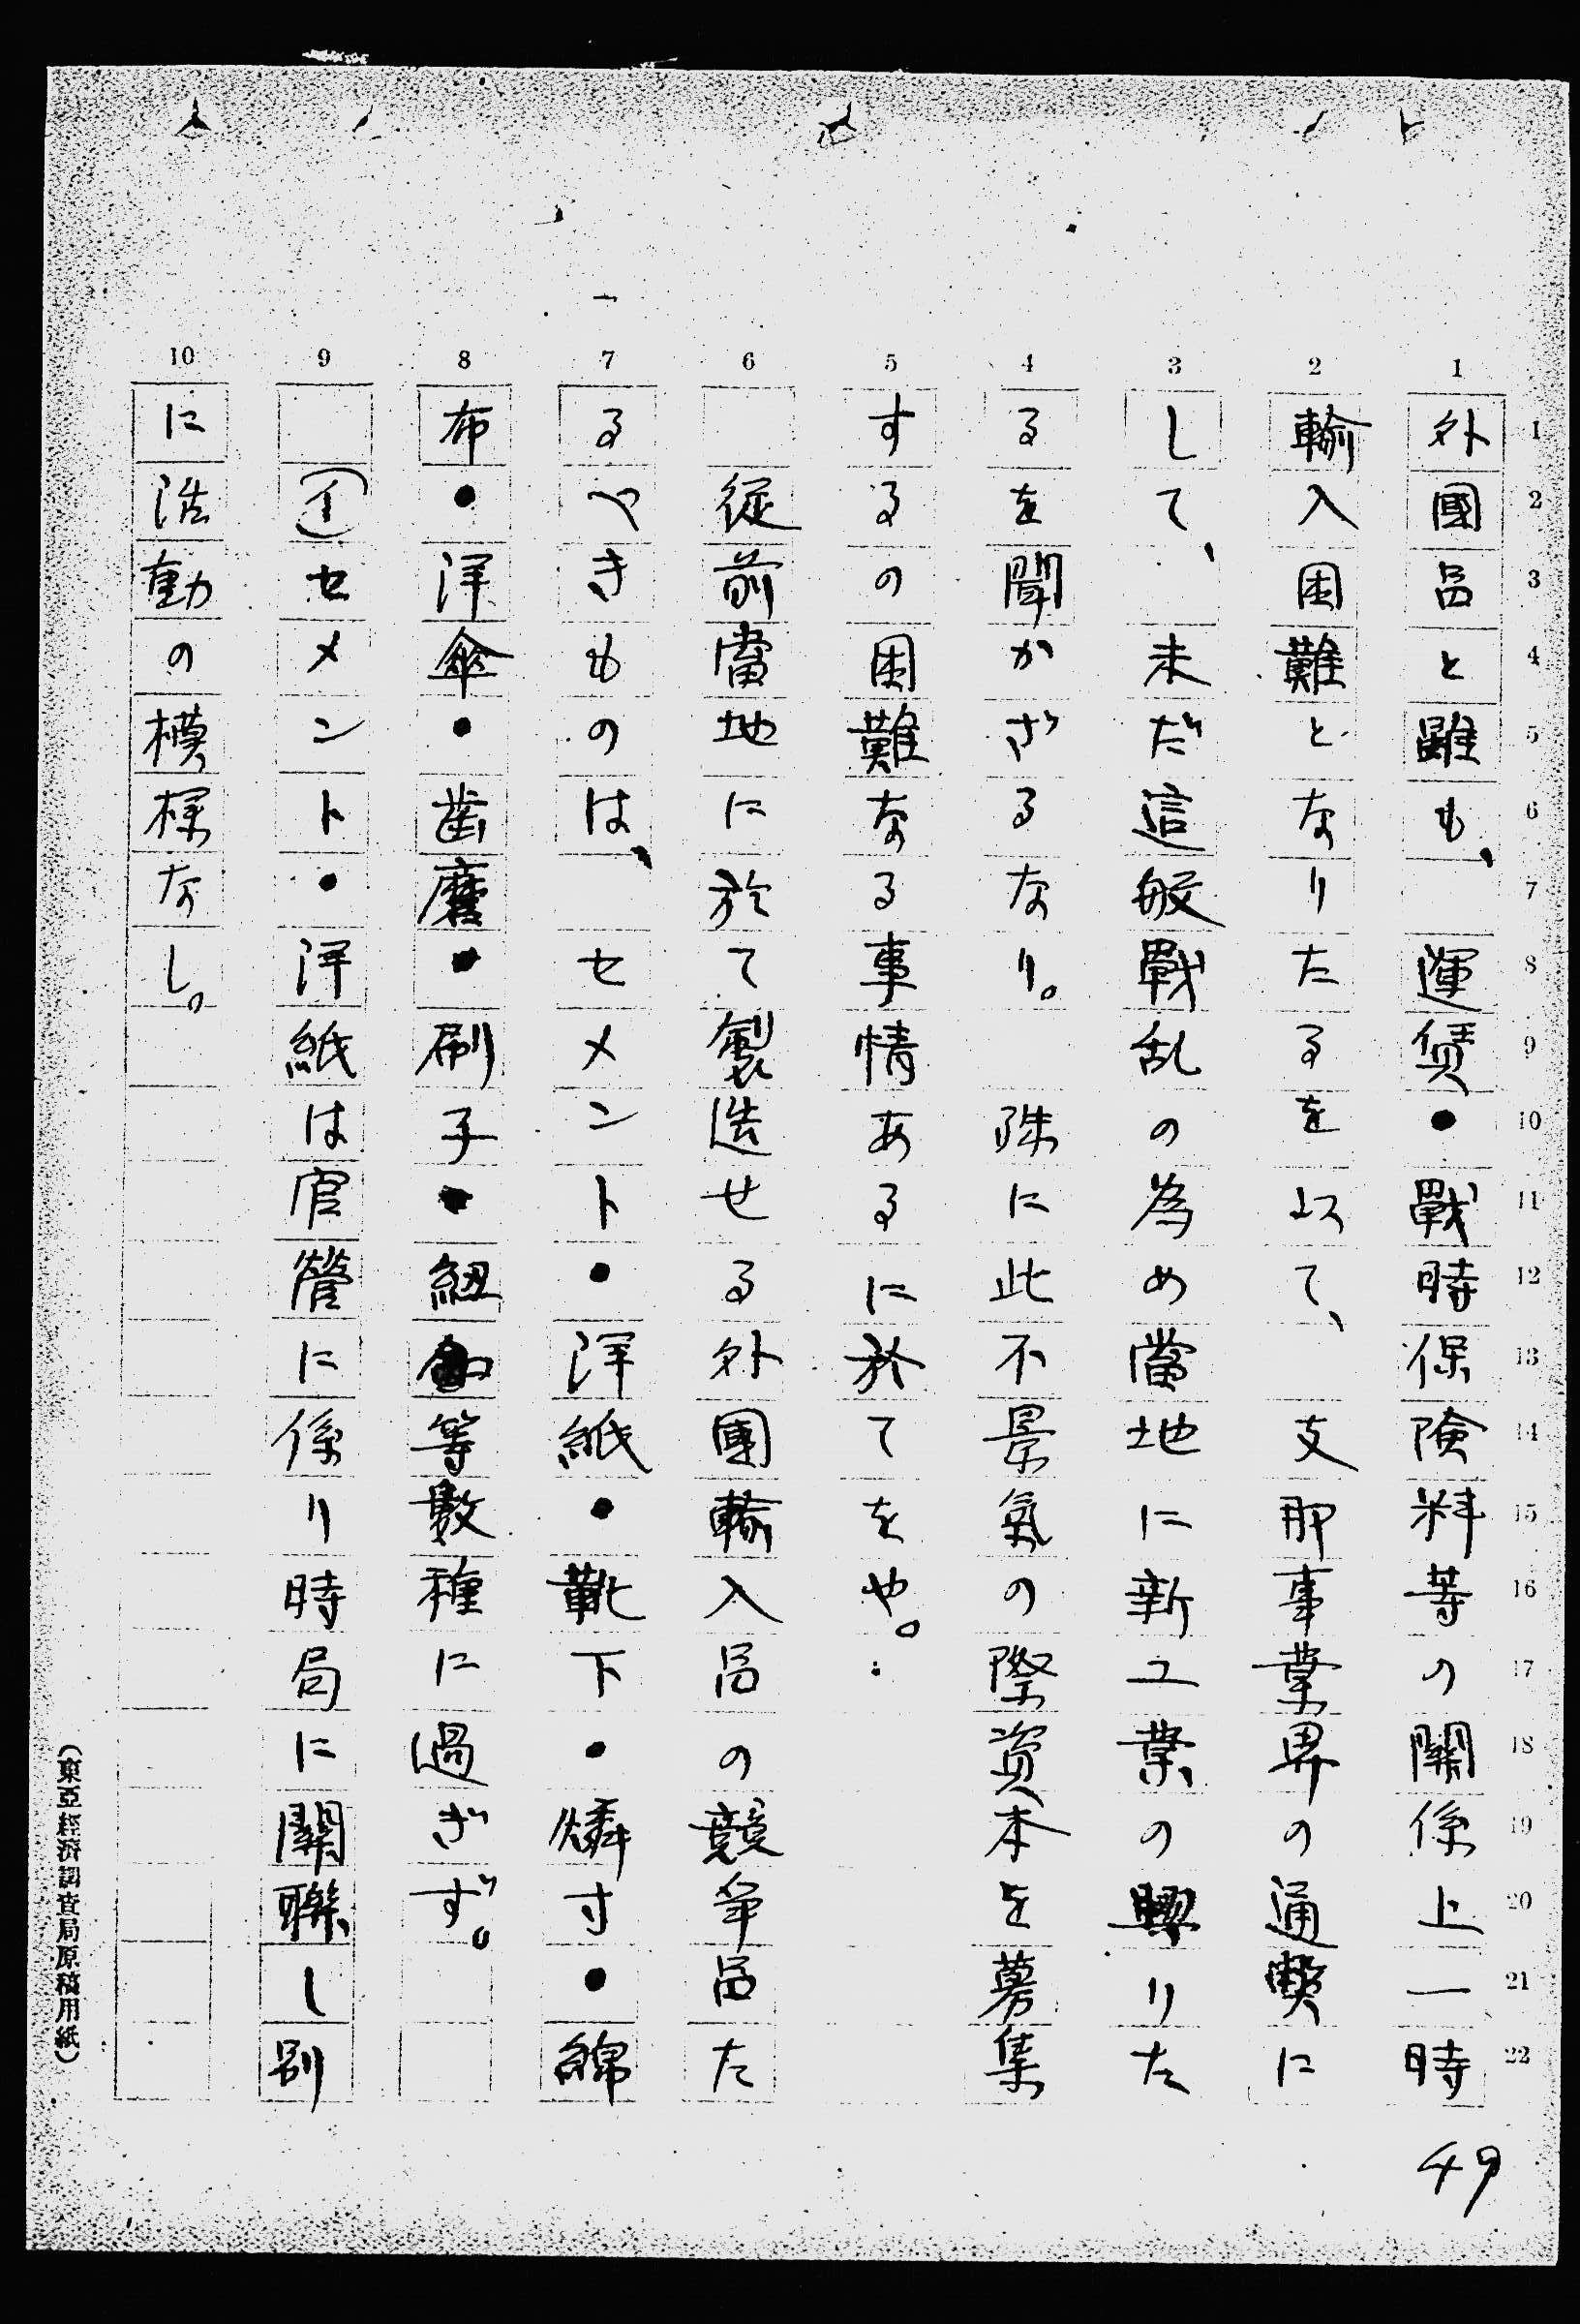 外國品と雖も、運賃・戰時保険料等の關係上一時
輸入困難となりたるを以て、支那事業界の通弊に
して、未だ這般戰乱の為め當地に新工業の興りた
るを聞かざるなり。殊に此不景氣の際資本を募集
するの困難なる事情あるに於てをや。
従前當地に於て製造せる外國輸入品の競争品た
るべきものは、セメント・洋紙・靴下・燐寸・綿
布・洋傘・歯磨・刷子・紐釦等数種に過ぎず。
(イ)セメント・洋紙は官營に係り時局に關聯し別
に活動の模様なし。
49
(東亞經濟調査局原稿用紙)
1 2 3 4 5 6 7 8 9 10
1 2 3 4 5 6 7 8 9 10 11 12 13 14 15 16 17 18 19 20 21 22